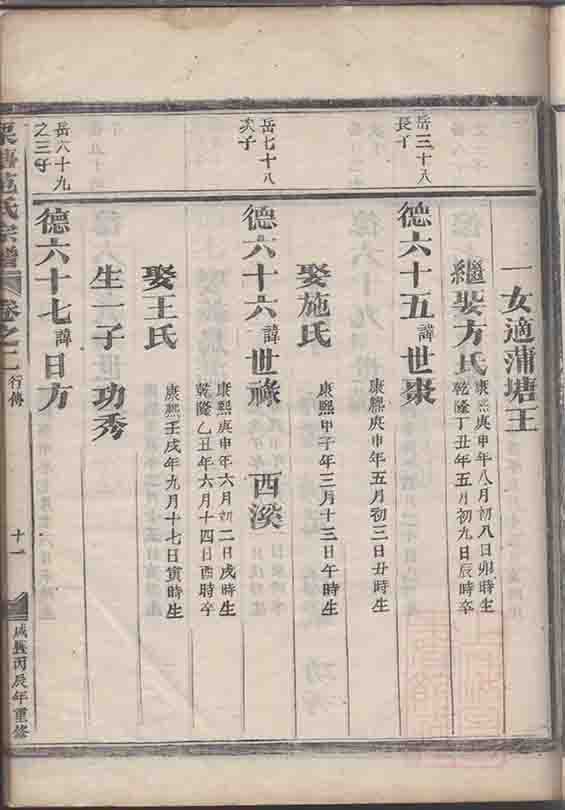 一女適蒲塘王
繼娶方氏
康熙庚申年八月初八日卯時生
乾隆丁丑年五月初九日辰時卒
岳三十八
長子
德六十五諱世棠
康熙庚申年五月初三日丑時生
娶施氏
康熙甲子年三月十三日午時生
岳七十八
次子
德六十六諱世祿 西溪
康熙庚申年六月初二日戌時生
乾隆乙丑年六月十四日酉時卒
娶王氏
康熙壬戌年九月十七日寅時生
生一子功秀
岳六十九
之三子
德六十七諱日方
范氏宗譜 卷之二 行傳 十一 咸豐丙辰年重修